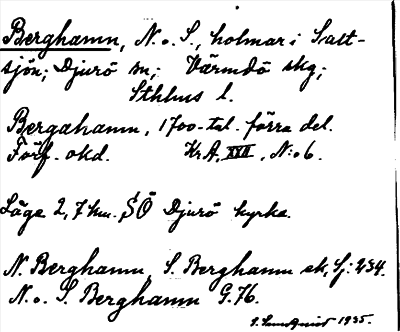 Berghamn, N. o. S., holmar i Salt-
sjön; Djurö sn; Värmdö skg;
Sthlms l.
Bergahamn, 1700-tal. förra del.
Förf. okd. KrA, XVII, N:o 6.
Läge 2,7 km. SÖ Djurö kyrka.
N. Berghamn, S. Berghamn ek, Sj: 234.
N. o. S. Berghamn G.76.
1935.